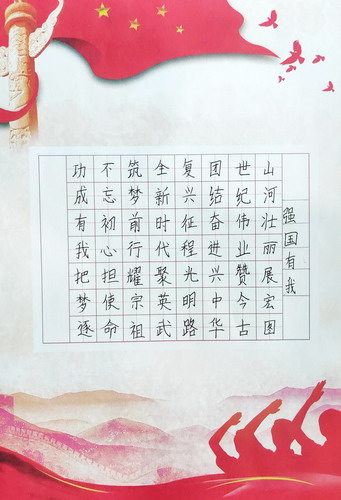 强国有我
山河壮丽展宏图
世纪伟业赞今古
团结奋进兴中华
复兴征程光明路
全新时代聚英武
筑梦前行耀宗祖
不忘初心担使命
功成有我把梦逐